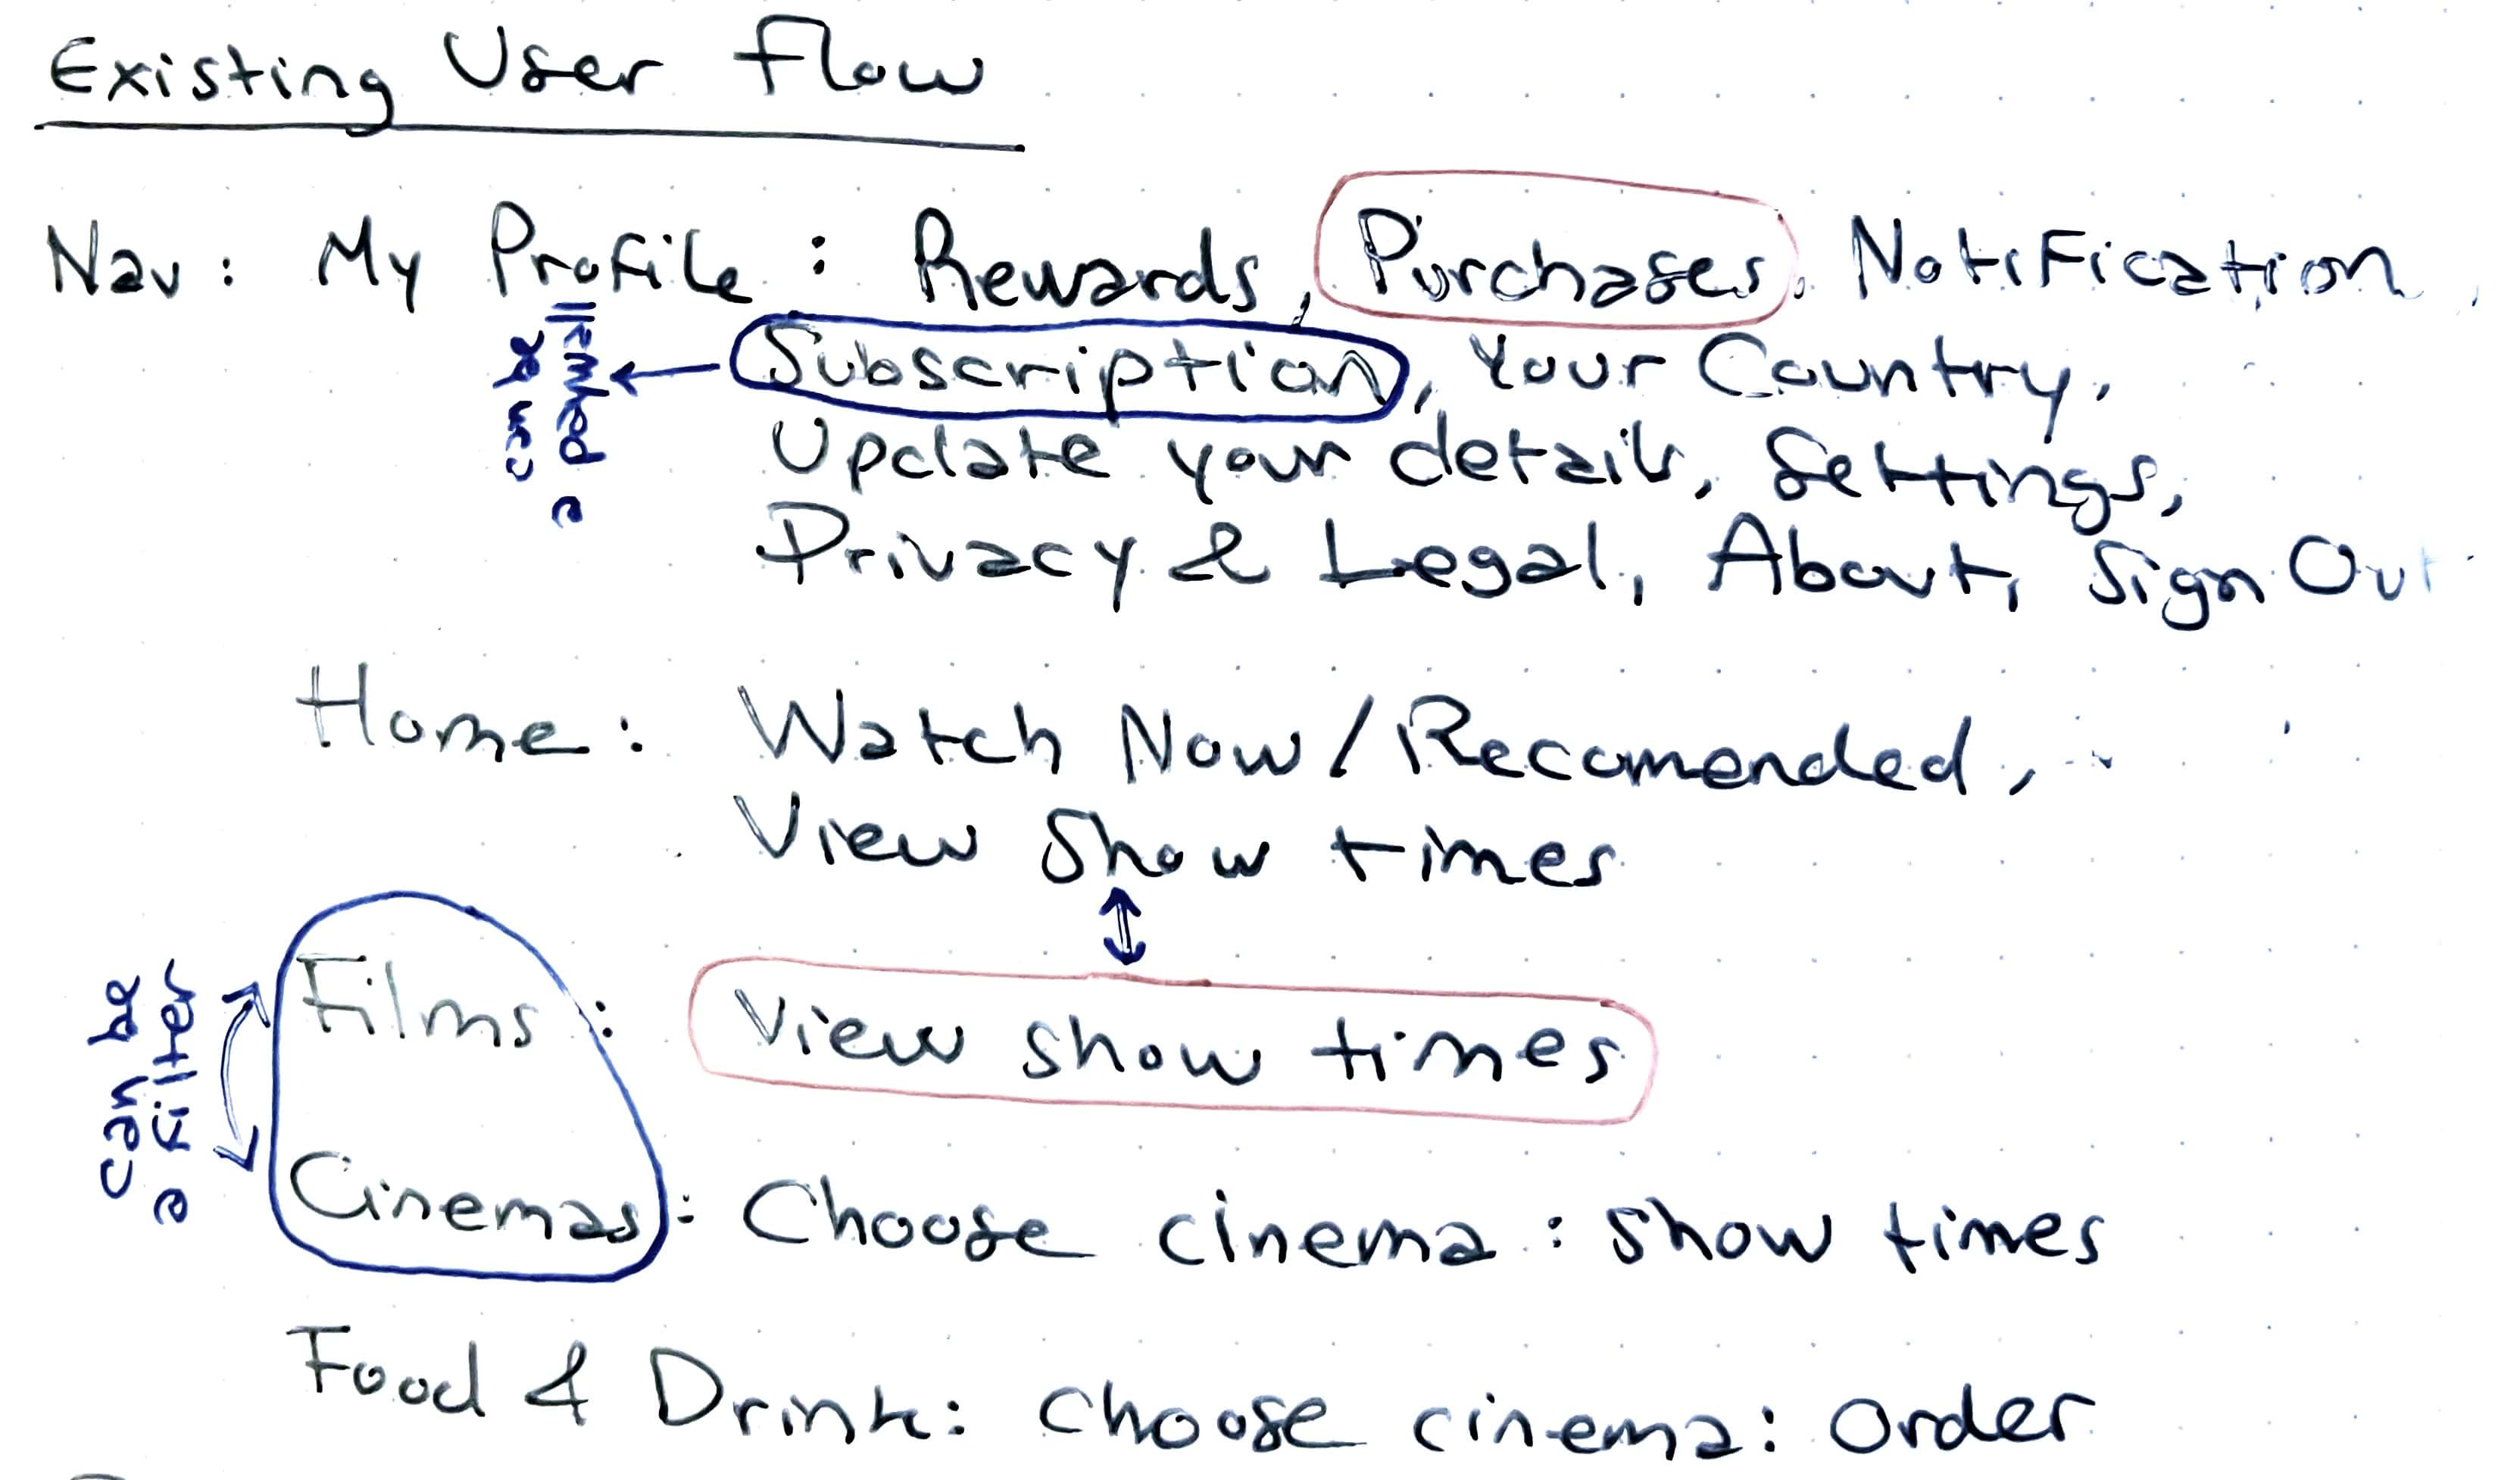 Existing User Flow
Nav: My Profile : Rewards, Purchases, Notification,
Subscription, Your Country,
can be
a paywall
Update your details, Settings,
Privacy & Legal, About, Sign Out
Home: Watch Now/Recomended,
View Show times
Films: View show times
can be
a filter
Cinemas: Choose cinema: Show times
Food & Drink: Choose cinema: Order